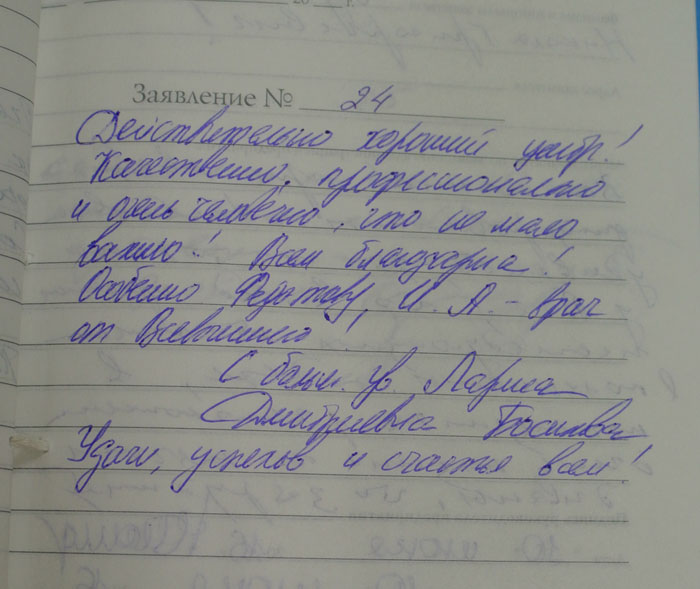 Заявление № 24
Действительно хороший центр!
Качественно, профессионально
и очень человечно, что не мало
важно! Вам благодарна!
Особенно Федотову, И. А. - врач
от Всевышнего
С больш. ув Лариса
Дмитриевна
Удачи, успехов и счастья вам!